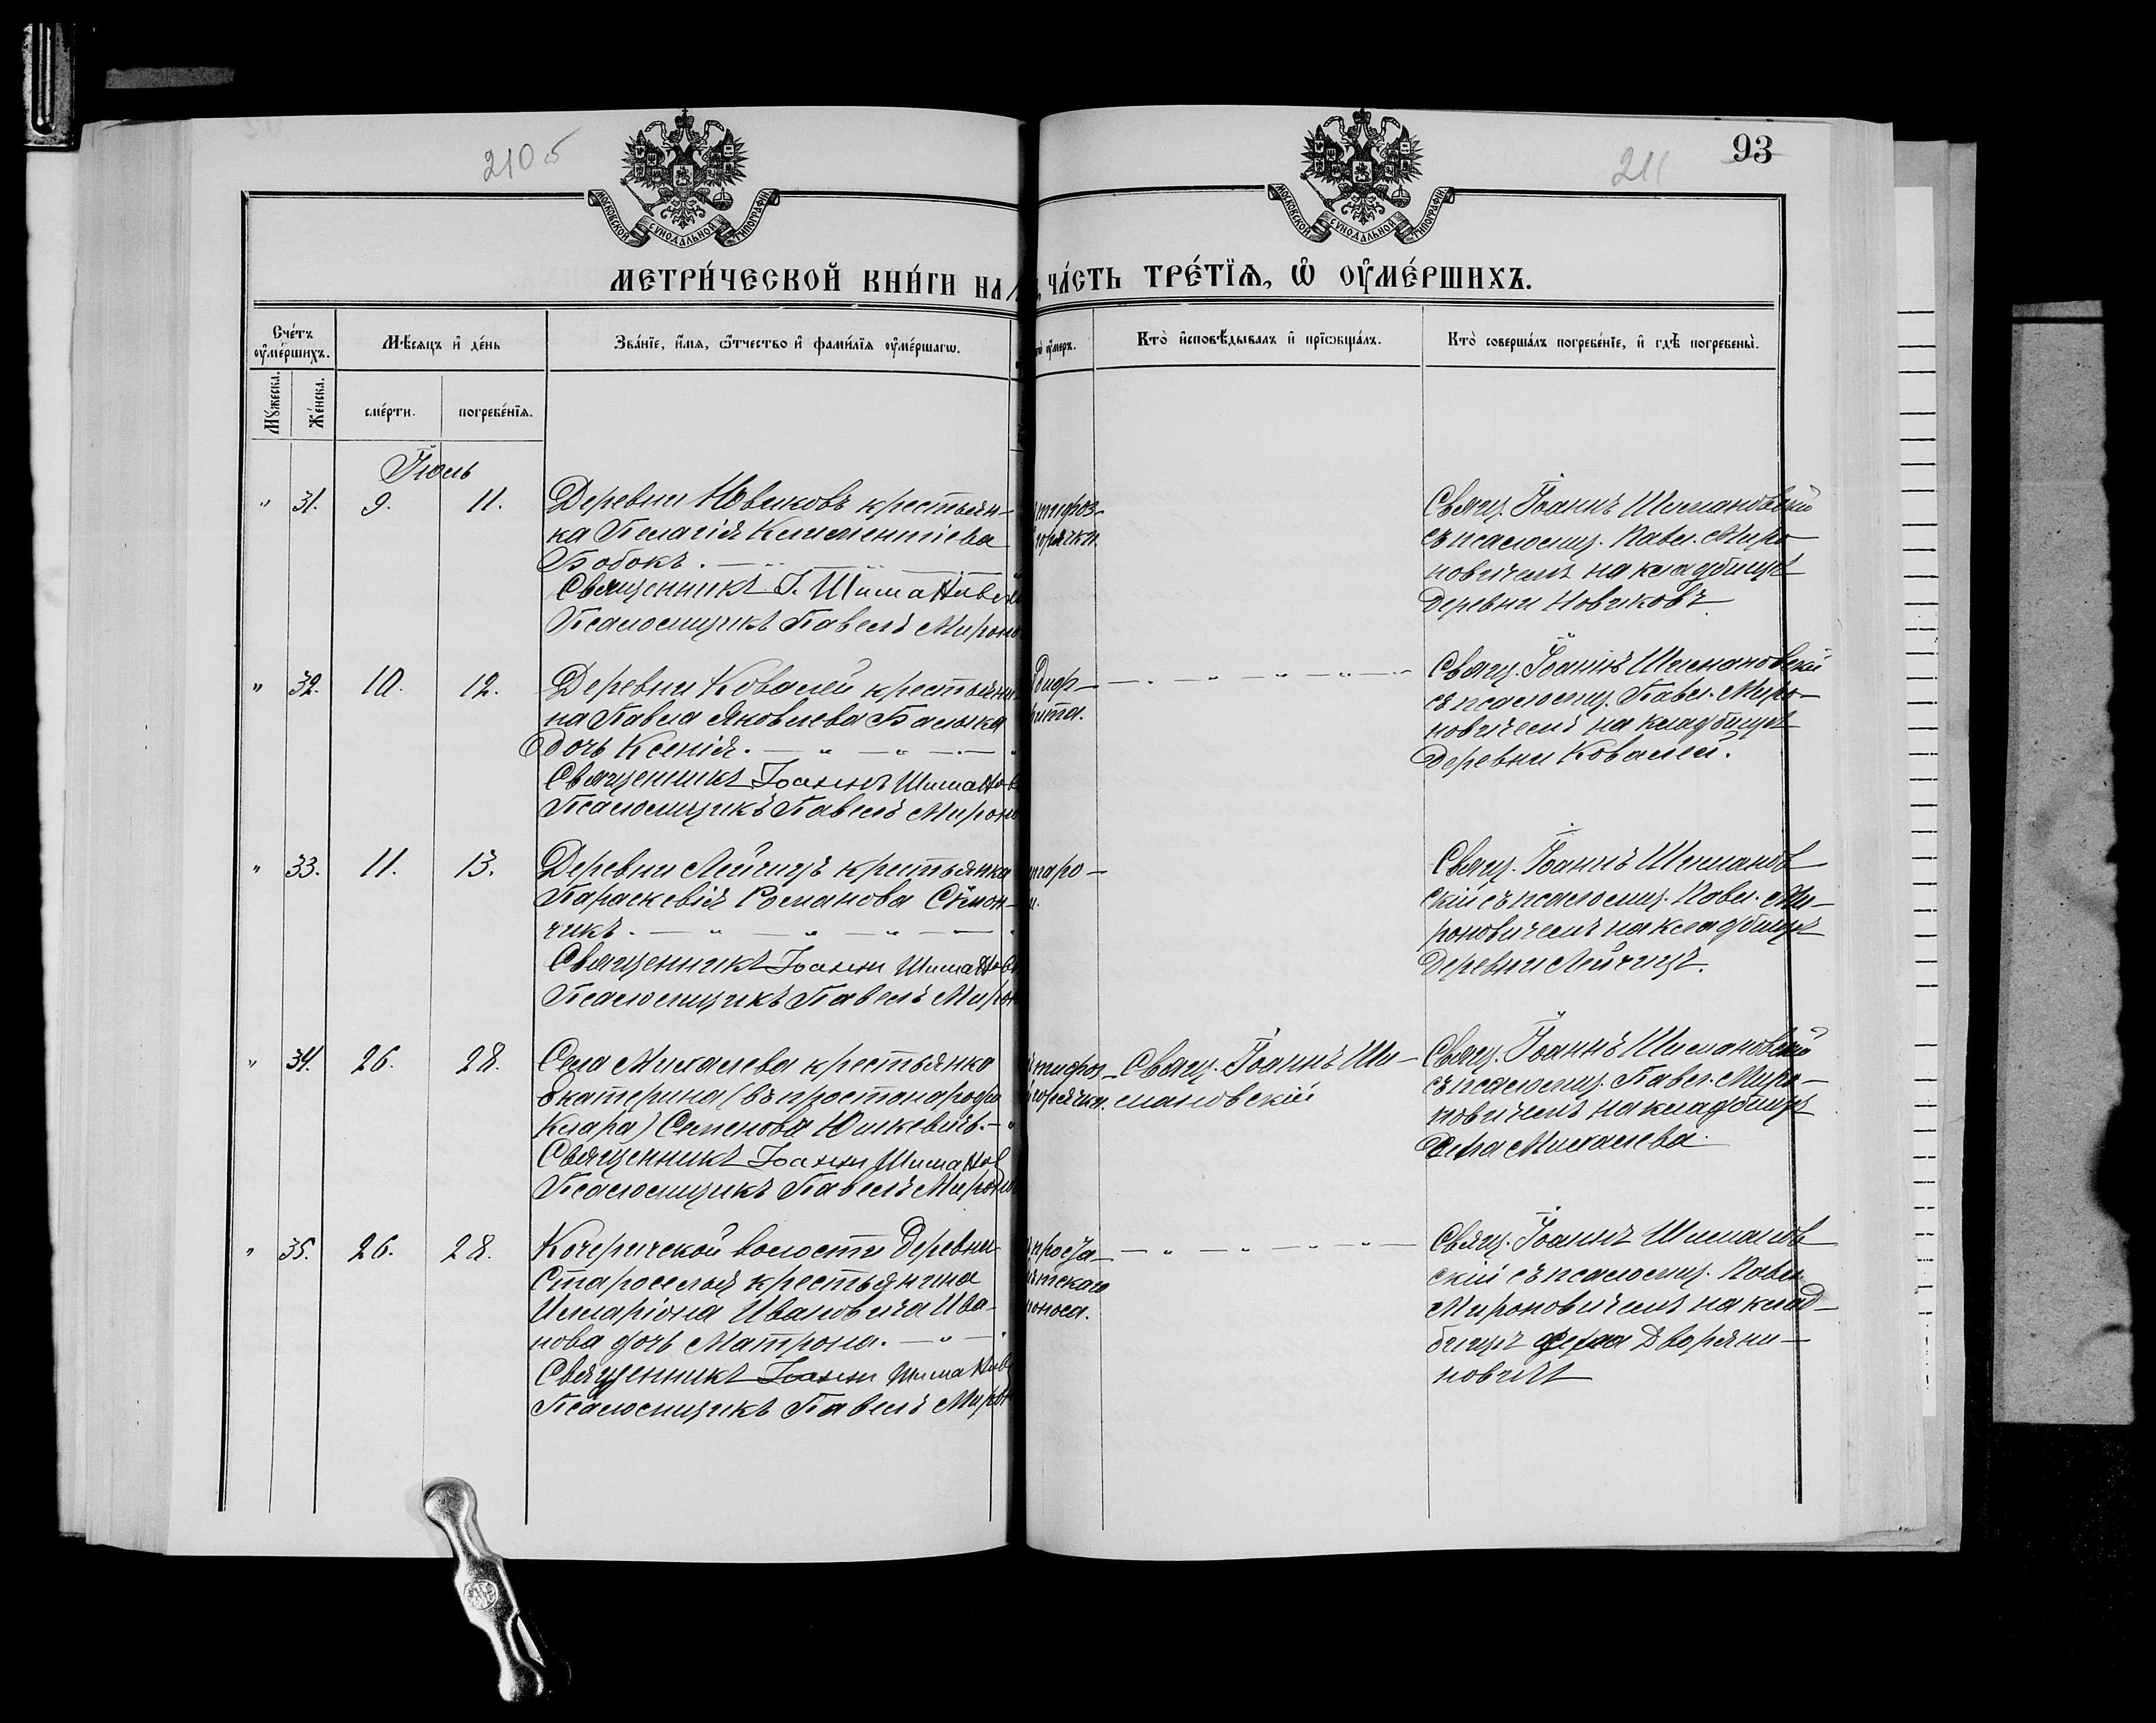 210 об
211
93
МОСКОВСКОЙ СѴНОДАЛЬНОЙ ТИПОГРАФІИ
МОСКОВСКОЙ СѴНОДАЛЬНОЙ ТИПОГРАФІИ
МЕТРИ́ЧЕСКОЙ КНИ́ГИ НА
ЧА́СТЬ ТРЕ́ТЇѦ, Ѡ҆ ОУ҆МЕ́РШИХЪ.
Сче́тъ оу҆ме́ршихъ.
Мѣ́сяцъ и҆ де́нь
Зва́нїе, и҆́мѧ, ѻ҆́тчество и҆ фами́лїѧ оу҆ме́ршагѡ.
оу҆́меръ.
Кто̀ и҆сповѣ́дывалъ и҆ прїѡбща́лъ.
Кто̀ соверша́лъ погребе́нїе, и҆ гдѣ̀ погребены̀.
Мꙋ́жеска.
Же́нска.
сме́рти.
погребе́нїѧ.
Іюль
" 31. 9. 11.
Деревни Новиковъ крестьян-
ка Пелагія Климентіева
Бобокъ.
Священникъ І. Шиманов
Псаломщикъ Павелъ Мироно
тифоз-
горячки.
Свящ. Іоаннъ Шимановскій
съ псаломщ. Павл. Миро-
новичемъ на кладбищѣ
деревни Новиковъ
" 32. 10. 12.
Деревни Ковалей крестьяни
на Павла Яковлева Балыка
дочь Ксенія.
Священникъ Іоаннъ Шиманов
Псаломщикъ Павелъ Мироно
диф-
рита.
Свящ. Іоаннъ Шимановскій
съ псаломщ. Павл. Миро-
новичемъ на кладбищѣ
деревни Ковалей.
" 33. 11. 13.
Деревни Лейчицъ крестьянка
Параскевія Романова Симон-
чикъ.
Священникъ Іоаннъ Шиманов
Псаломщикъ Павелъ Мирон
таро-
и.
Свящ. Іоаннъ Шиманов
скій съ псаломщ. Павл. Ми-
роновичемъ на кладбищѣ
деревни Лейчицъ.
" 34. 26. 28.
Села Михалева крестьянка
Екатерина (въ простонародіи
Клара) Семенова Юшкевичъ.
Священникъ Іоаннъ Шиманов
Псаломщикъ Павелъ Мироно
тифоз-
горячки.
Свящ. Іоаннъ Ши-
мановскій
Свящ. Іоаннъ Шимановскій
съ псаломщ. Павл. Миро-
новичемъ на кладбищѣ
села Михалева.
" 35. 26. 28.
Кочеричской волости деревни
Староселья крестьянина
Илларіона Ивановича Ива-
нова дочь Матрона.
Священникъ Іоаннъ Шиманов
Псаломщикъ Павелъ Мирон
тскаго
поноса.
Свящ. Іоаннъ Шиманов
скій съ псаломщ. Павл.
Мироновичемъ на клад-
бищѣ села Дворяни-
новичъ